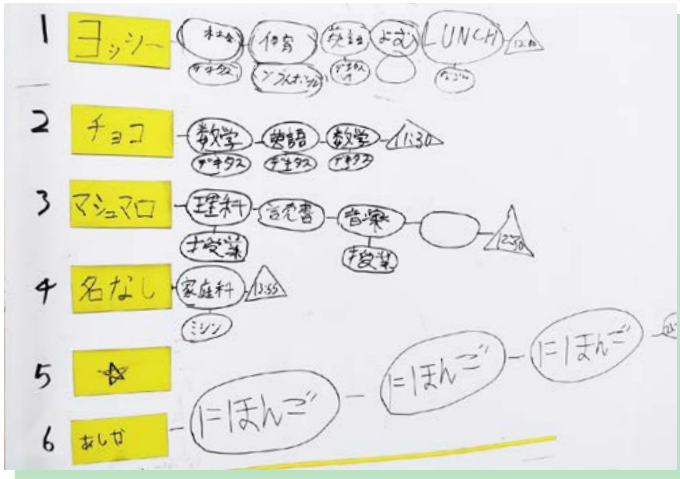 1 ヨッシー 社会 体育 英語 よむ LUNCH
デキタス
2 チョコ 数学 英語 数学 11:30
デキタス デキタス デキタス
3 マシュマロ 理科 音楽 12:30
授業 授業
4 名なし 家庭科 13:55
ミシン
5 ☆
6 あしか にほんご にほんご にほんご